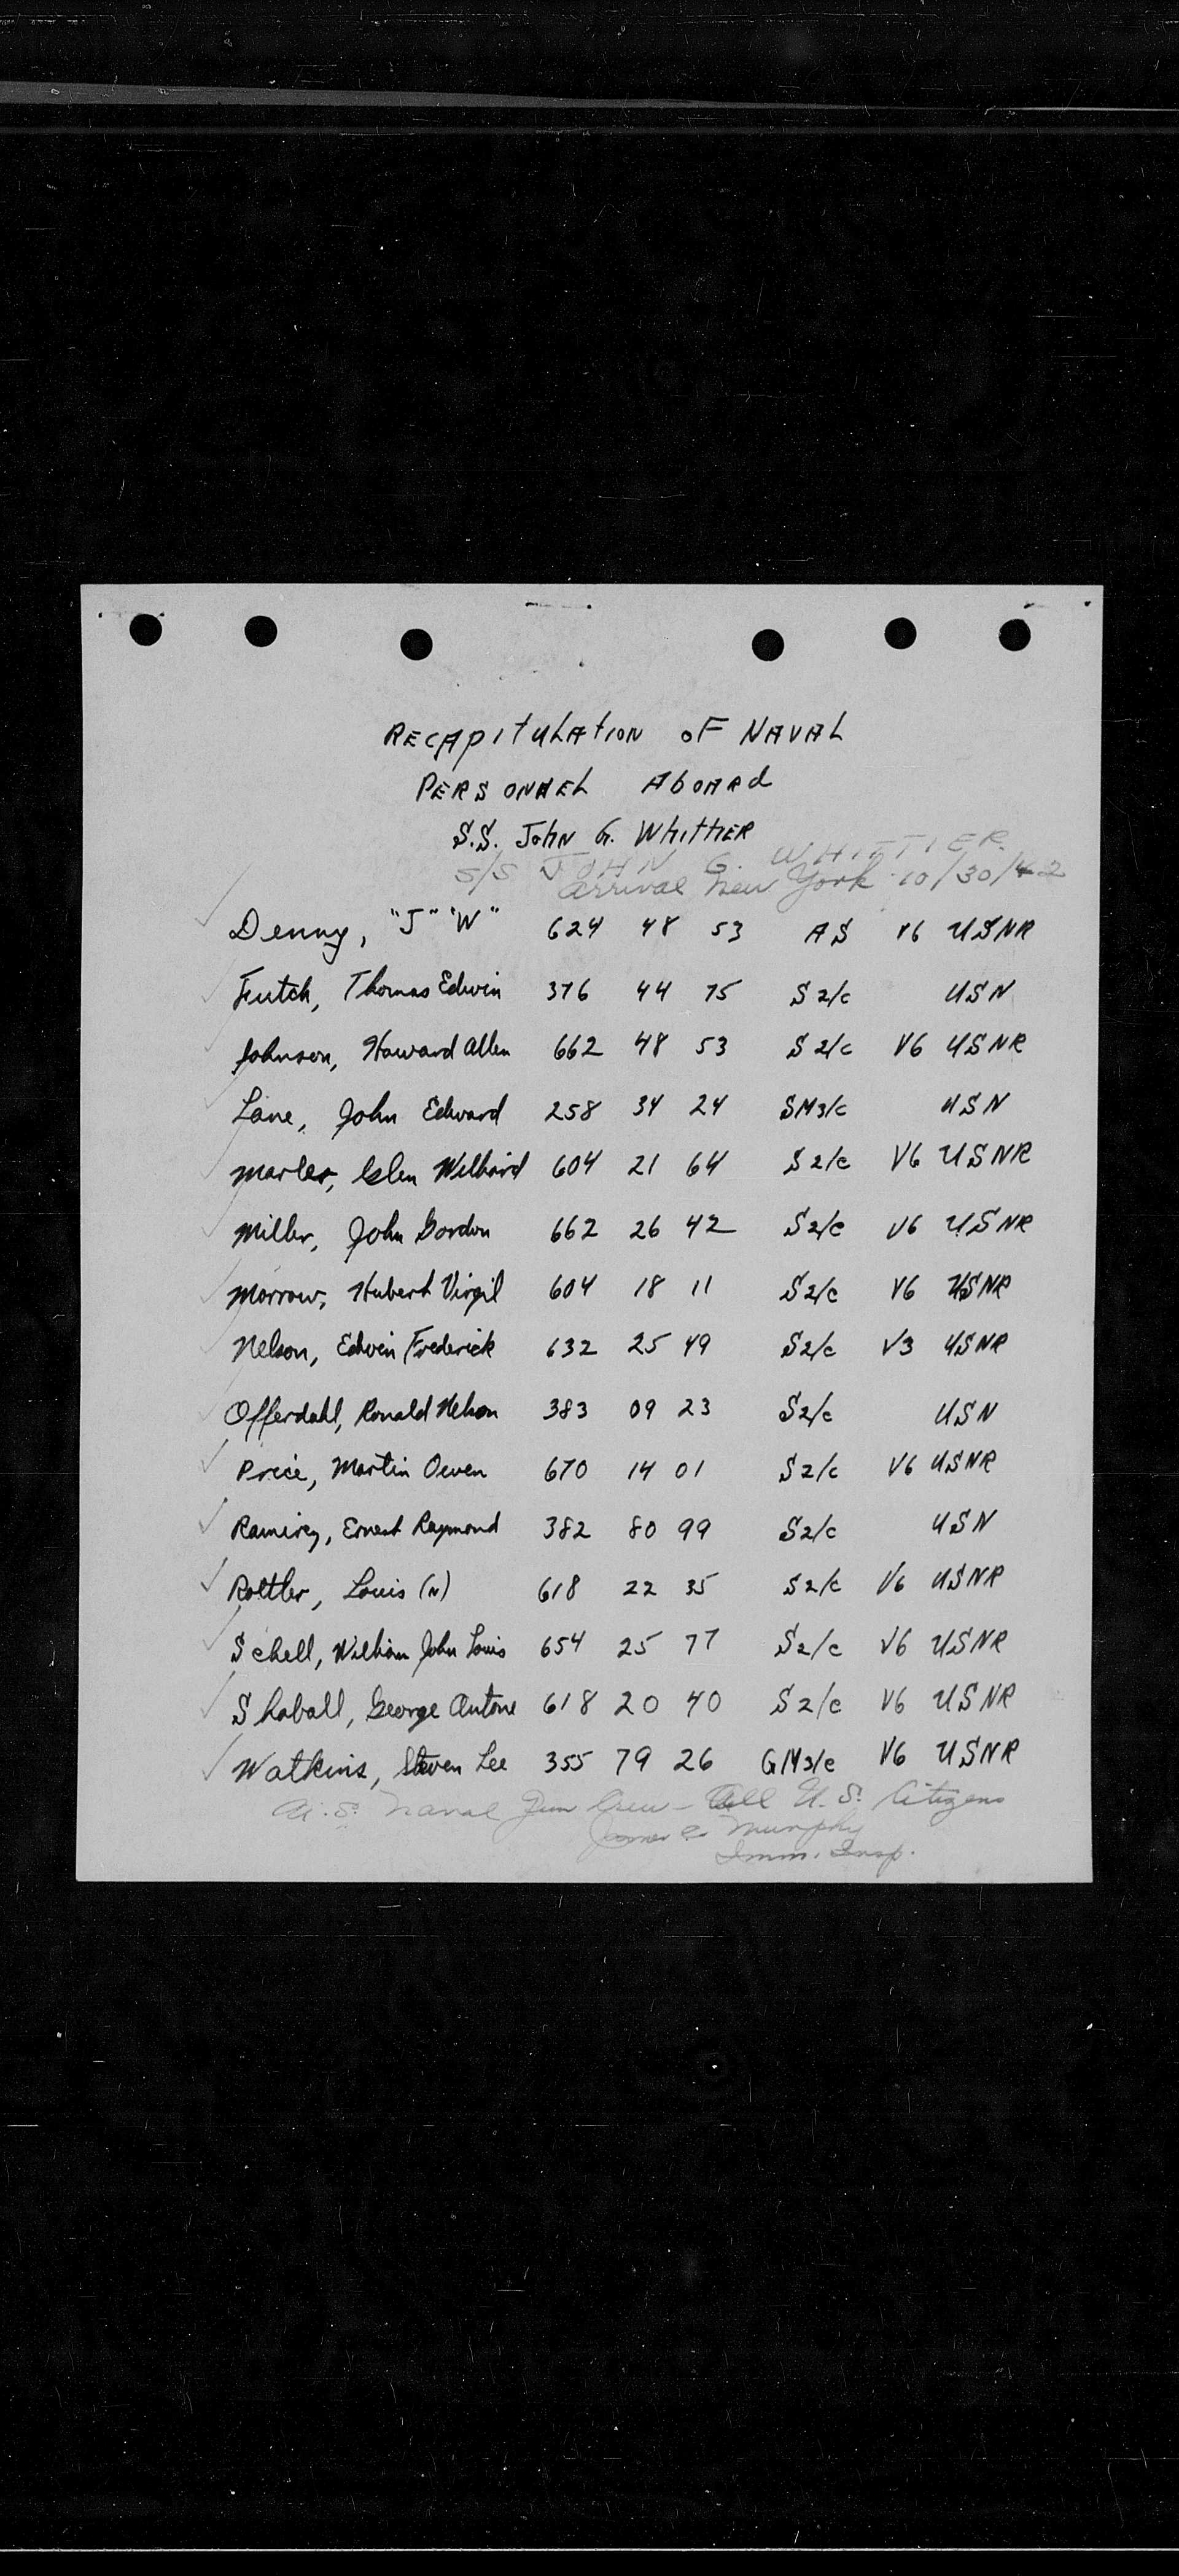 RECAPITULATION OF NAVAL
PERSONNEL ABOARD
S.S. JOHN G. WHITTIER
S/S JOHN G. WHITTIER
arrival New York 10/30/42
Denny, "J" "W" 624 48 53 AS V6 USNR
Futch, Thomas Edwin 376 44 75 S2/c USN
Johnson, Howard Allen 662 48 53 S2/c V6 USNR
Lane, John Edward 258 34 24 SM3/c USN
Glen 604 21 64 S2/c V6 USNR
Miller, John Gordon 662 26 42 S2/c V6 USNR
Morrow, Hubert Virgil 604 18 11 S2/c V6 USNR
Nelson, Edwin Frederick 632 25 49 S2/c V3 USNR
Offerdahl, Ronald Nelson 383 09 23 S2/c USN
Price, Martin Owen 670 14 01 S2/c V6 USNR
Ramirez, Ernest Raymond 382 80 99 S2/c USN
Roettler, Louis (N) 618 22 35 S2/c V6 USNR
Schell, William John Louis 654 25 77 S2/c V6 USNR
Skaball, George Antone 618 20 40 S2/c V6 USNR
Watkins, Steven Lee 355 79 26 GM3/c V6 USNR
U.S. Naval Gun Crew - All U.S. Citizens
James E. Murphy
Imm. Insp.